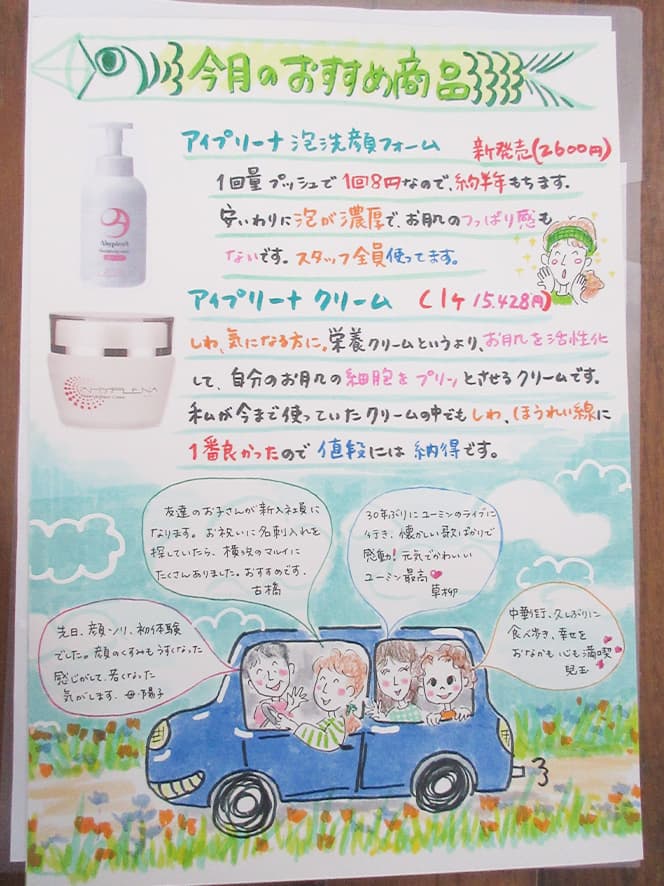 今月のおすすめ商品
アイプリーナ 泡洗顔フォーム 新発売(2600円)
1回量プッシュで1回8円なので、約半年もちます。
安いわりに泡が濃厚で、お肌のつっぱり感も
ないです。スタッフ全員使ってます。
アイプリーナ クリーム (1ケ 15.428円)
しわ、気になる方に。栄養クリームというより、お肌を活性化
して、自分のお肌の細胞をプリッとさせるクリームです。
私が今まで使っていたクリームの中でもしわ、ほうれい線に
1番良かったので値段には納得です。
友達のお子さんが新入社員に
なります。お祝いに名刺入れを
探していたら、横浜のマルイに
たくさんありました。おすすめです。
古橋
30年ぶりにユーミンのライブに
行き、懐かしい歌ばかりで
感動!元気でかわいい
ユーミン最高
草柳
先日、顔ソリ、初体験
でした。顔のくすみもうすくなった
感じがして、若くなった
気がします。母・陽子
中華街、久しぶりに
食べ歩き、幸せを
おなかも心も満喫
児玉